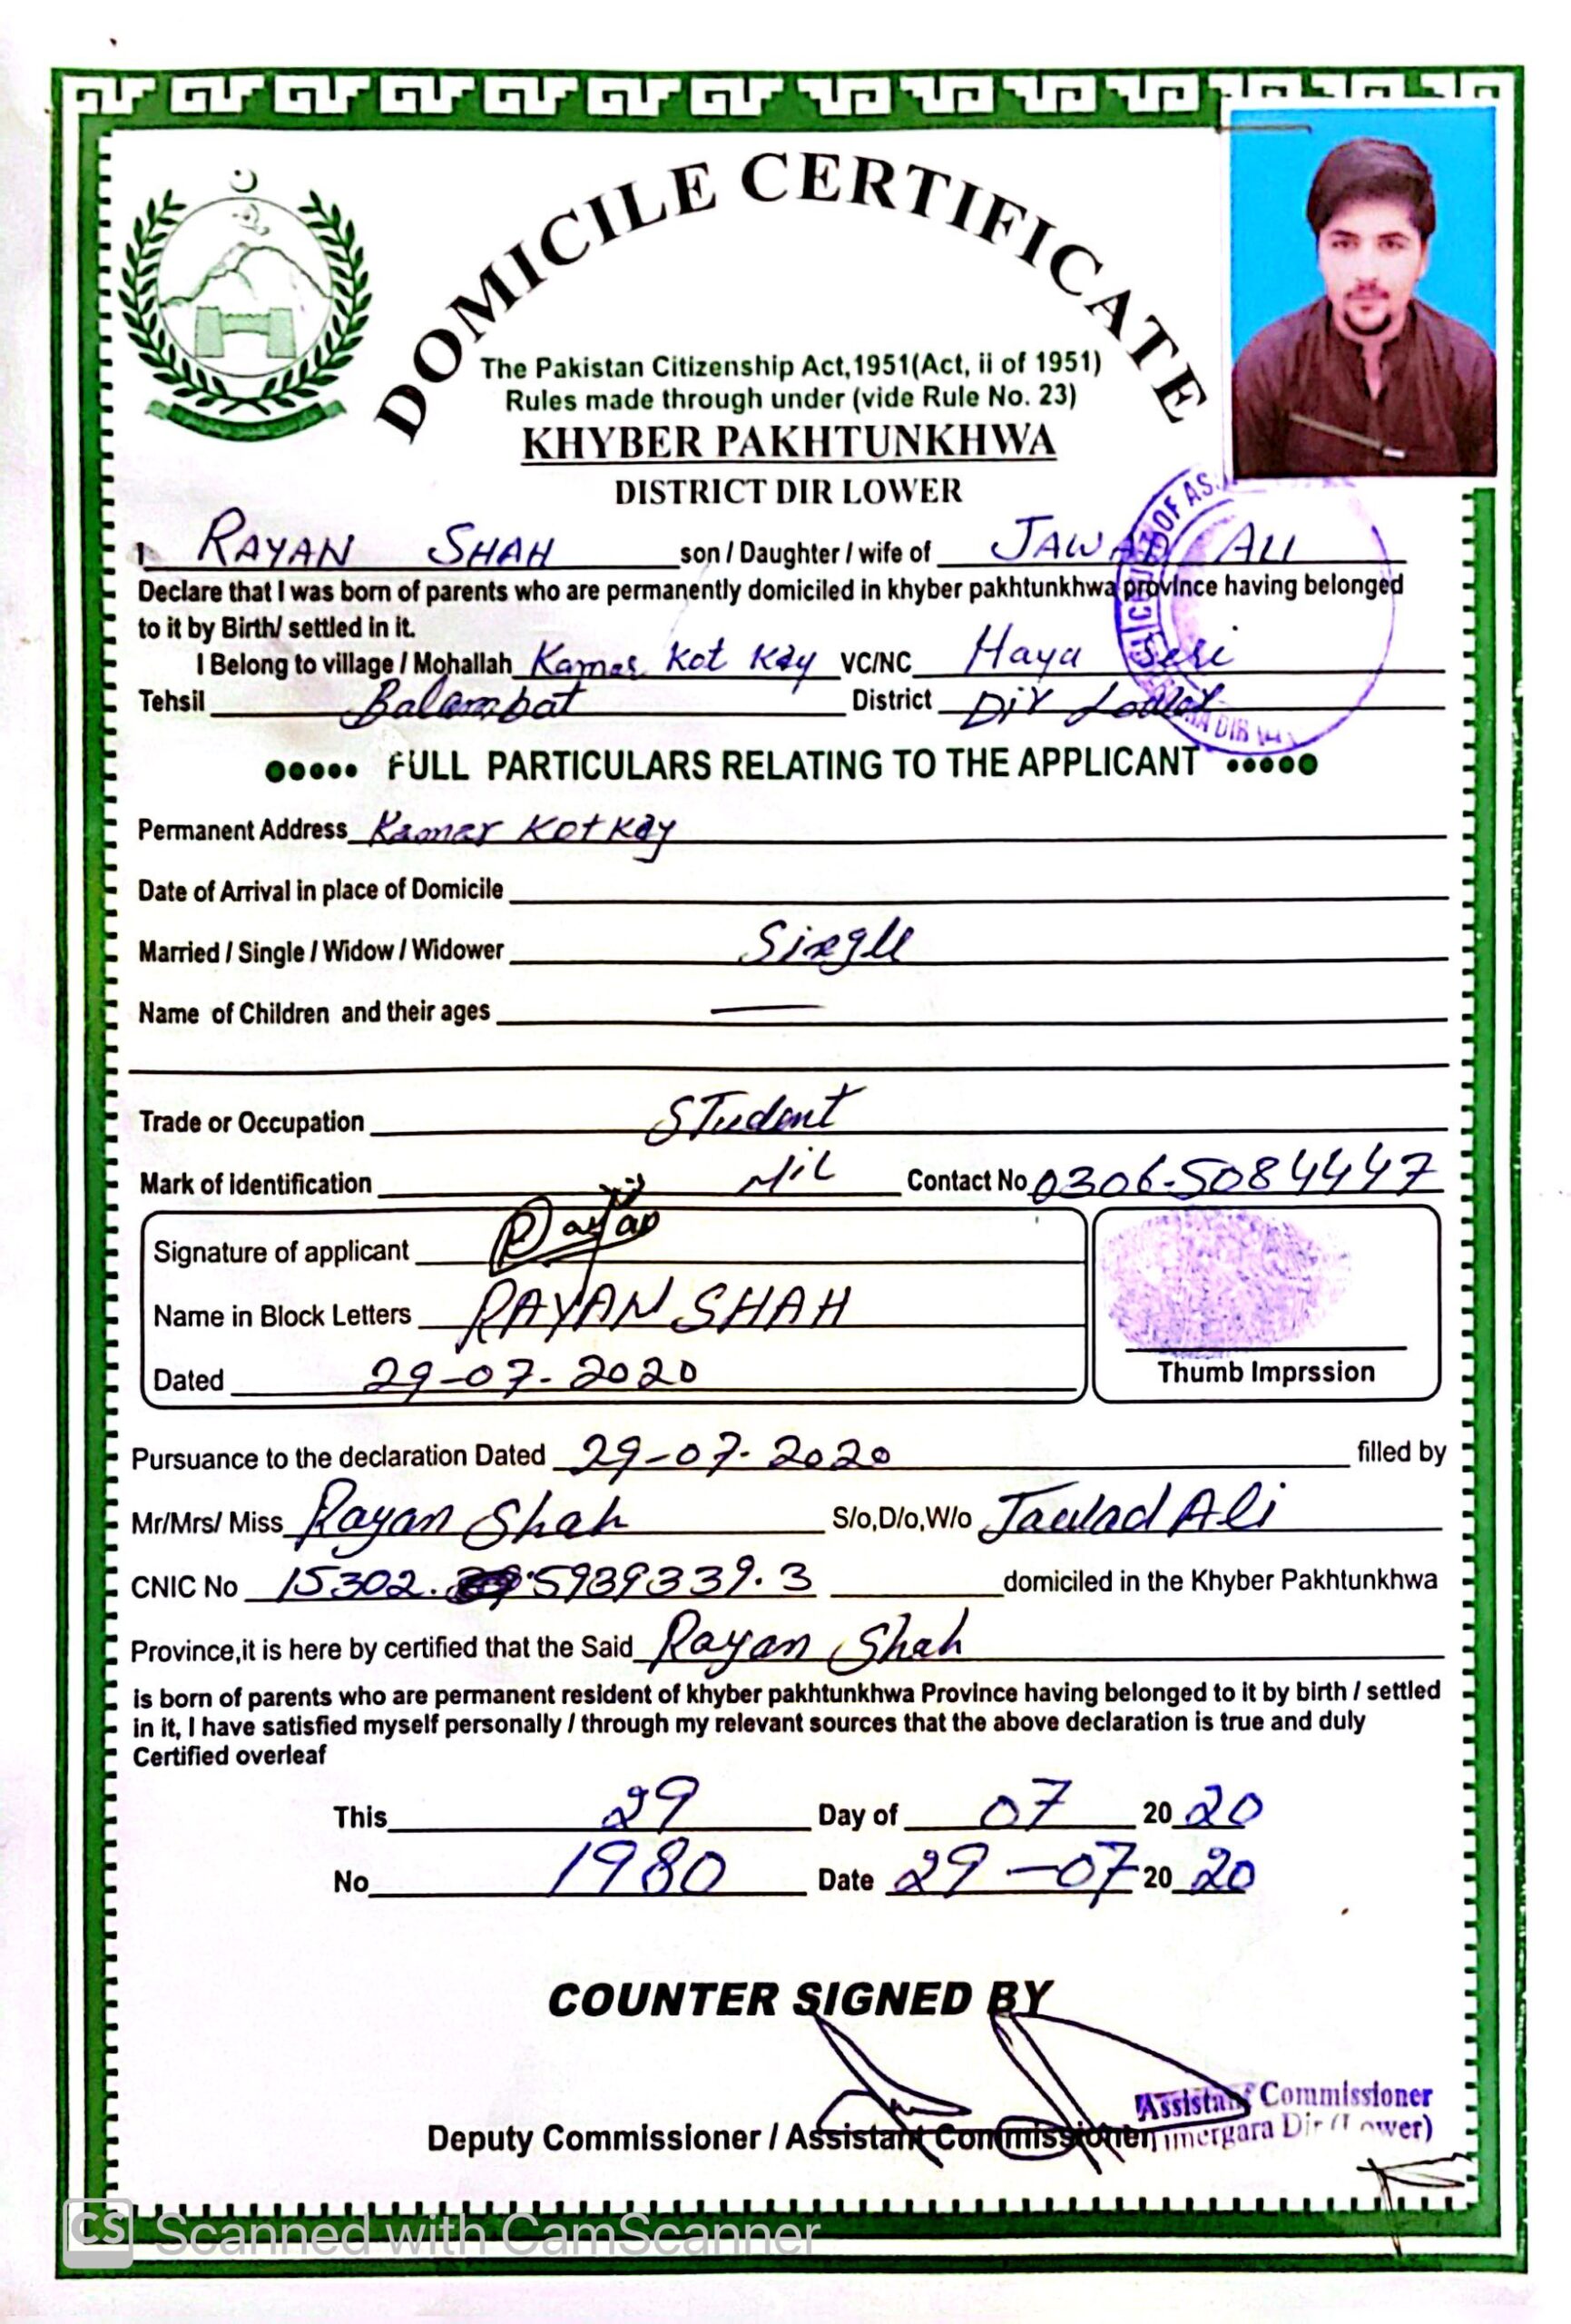 DOMICILE CERTIFICATE
The Pakistan Citizenship Act,1951(Act, ii of 1951)
Rules made through under (vide Rule No. 23)
KHYBER PAKHTUNKHWA
DISTRICT DIR LOWER
I RAYAN SHAH son / Daughter / wife of JAWAD ALI
Declare that I was born of parents who are permanently domiciled in khyber pakhtunkhwa province having belonged
to it by Birth/ settled in it.
I Belong to village / Mohallah Kamar Kot Kay VC/NC Haya Seri
Tehsil Balambat District Dir Lower
FULL PARTICULARS RELATING TO THE APPLICANT
Permanent Address Kamar Kot Kay
Date of Arrival in place of Domicile
Married / Single / Widow / Widower Single
Name of Children and their ages —
Trade or Occupation Student
Mark of identification Nil Contact No 0306-5084447
Signature of applicant Rayan
Name in Block Letters RAYAN SHAH
Dated 29-07-2020
Thumb Imprssion
Pursuance to the declaration Dated 29-07-2020 filled by
Mr/Mrs/ Miss Rayan Shah S/o,D/o,W/o Jawad Ali
CNIC No 15302.5939339.3 domiciled in the Khyber Pakhtunkhwa
Province,it is here by certified that the Said Rayan Shah
is born of parents who are permanent resident of khyber pakhtunkhwa Province having belonged to it by birth / settled
in it, I have satisfied myself personally / through my relevant sources that the above declaration is true and duly
Certified overleaf
This 29 Day of 07 20 20
No 1980 Date 29-07 20 20
COUNTER SIGNED BY
Assistant Commissioner
Deputy Commissioner / Assistant Commissioner Timergara Dir (Lower)
CS Scanned with CamScanner